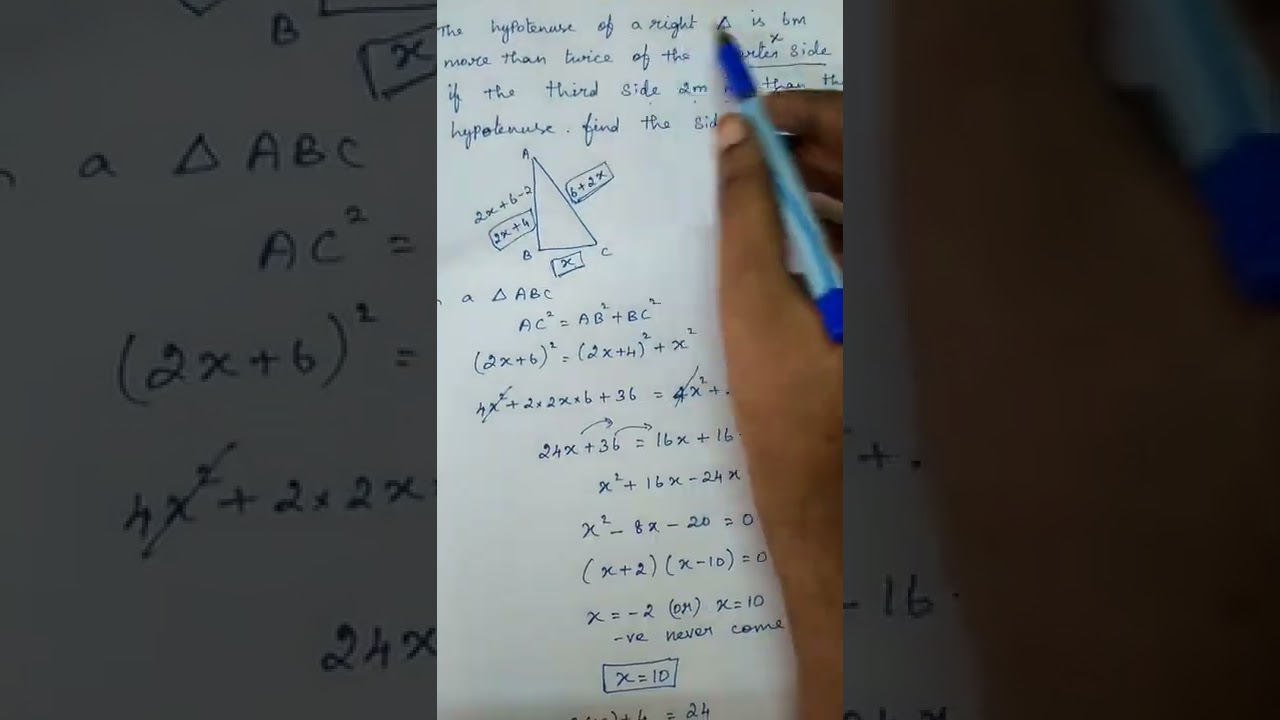 The hypotenuse of a right △ is 6m
x
more than twice of the side
if the third side 2m than the
hypotenuse. find the
A
2x+6-2
6+2x
2x+4
B
x
C
a △ ABC
AC² = AB² + BC²
(2x+6)² = (2x+4)² + x²
4x² + 2×2x×6 + 36 = 4x² + .
24x + 36 = 16x + 16
x² + 16x - 24x
x² - 8x - 20 = 0
(x+2) (x-10) = 0
x = -2 (or) x = 10
-ve never come
x = 10
+4 = 24
B
x
a △ ABC
AC² =
(2x+6)² =
4x² + 2×2x
24x
+ .
- 16